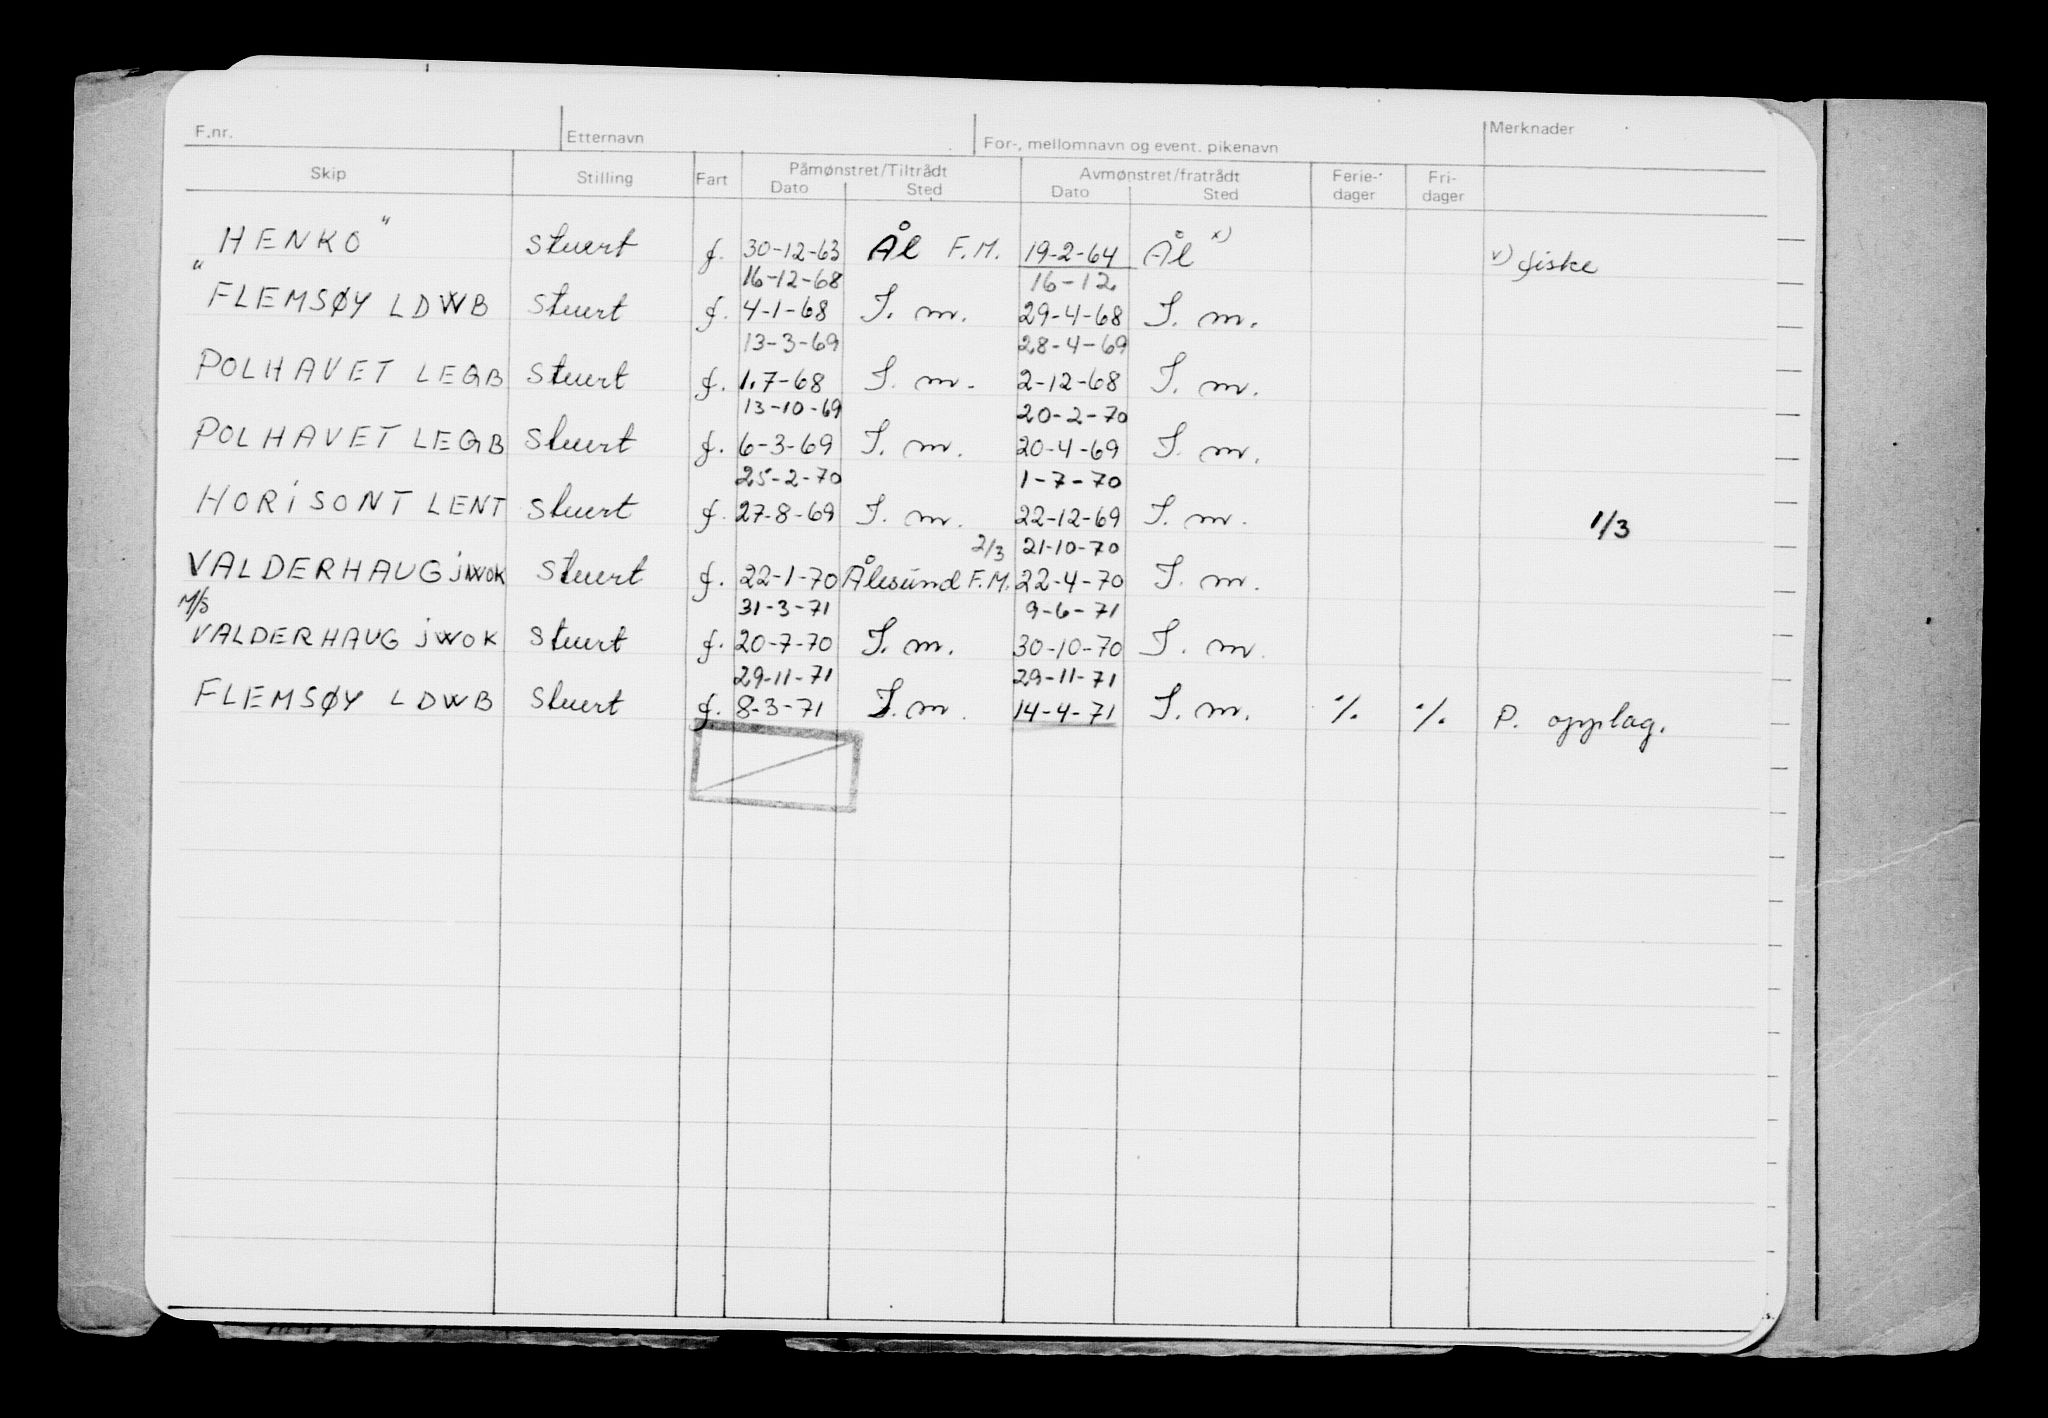 F.nr. Etternavn For-, mellomnavn og event. pikenavn Merknader
Skip Stilling Fart Påmønstret/Tiltrådt Avmønstret/fratrådt Ferie- Fri-
Dato Sted Dato Sted dager dager
"HENKO" Stuert f. 30-12-63 Ål F.M. 19-2-64 Ål x) x) fiske
16-12-68 16-12
FLEMSØY LDWB Stuert f. 4-1-68 S. m. 29-4-68 S. m.
13-3-69 28-4-69
POLHAVET LEGB Stuert f. 1.7-68 S. m. 2-12-68 S. m.
13-10-69 20-2-70
POLHAVET LEGB Stuert f. 6-3-69 S. m. 20-4-69 S. m.
25-2-70 1-7-70
HORISONT LENT Stuert f. 27-8-69 S. m. 22-12-69 S. m. 1/3
2/3 21-10-70
VALDERHAUG jWOK Stuert f. 22-1-70 Ålesund F.M. 22-4-70 S. m.
M/S 31-3-71 9-6-71
VALDERHAUG jWOK Stuert f. 20-7-70 S. m. 30-10-70 S. m.
29-11-71 29-11-71
FLEMSØY LDWB Stuert f. 8-3-71 S. m. 14-4-71 S. m. % % P. opplag.